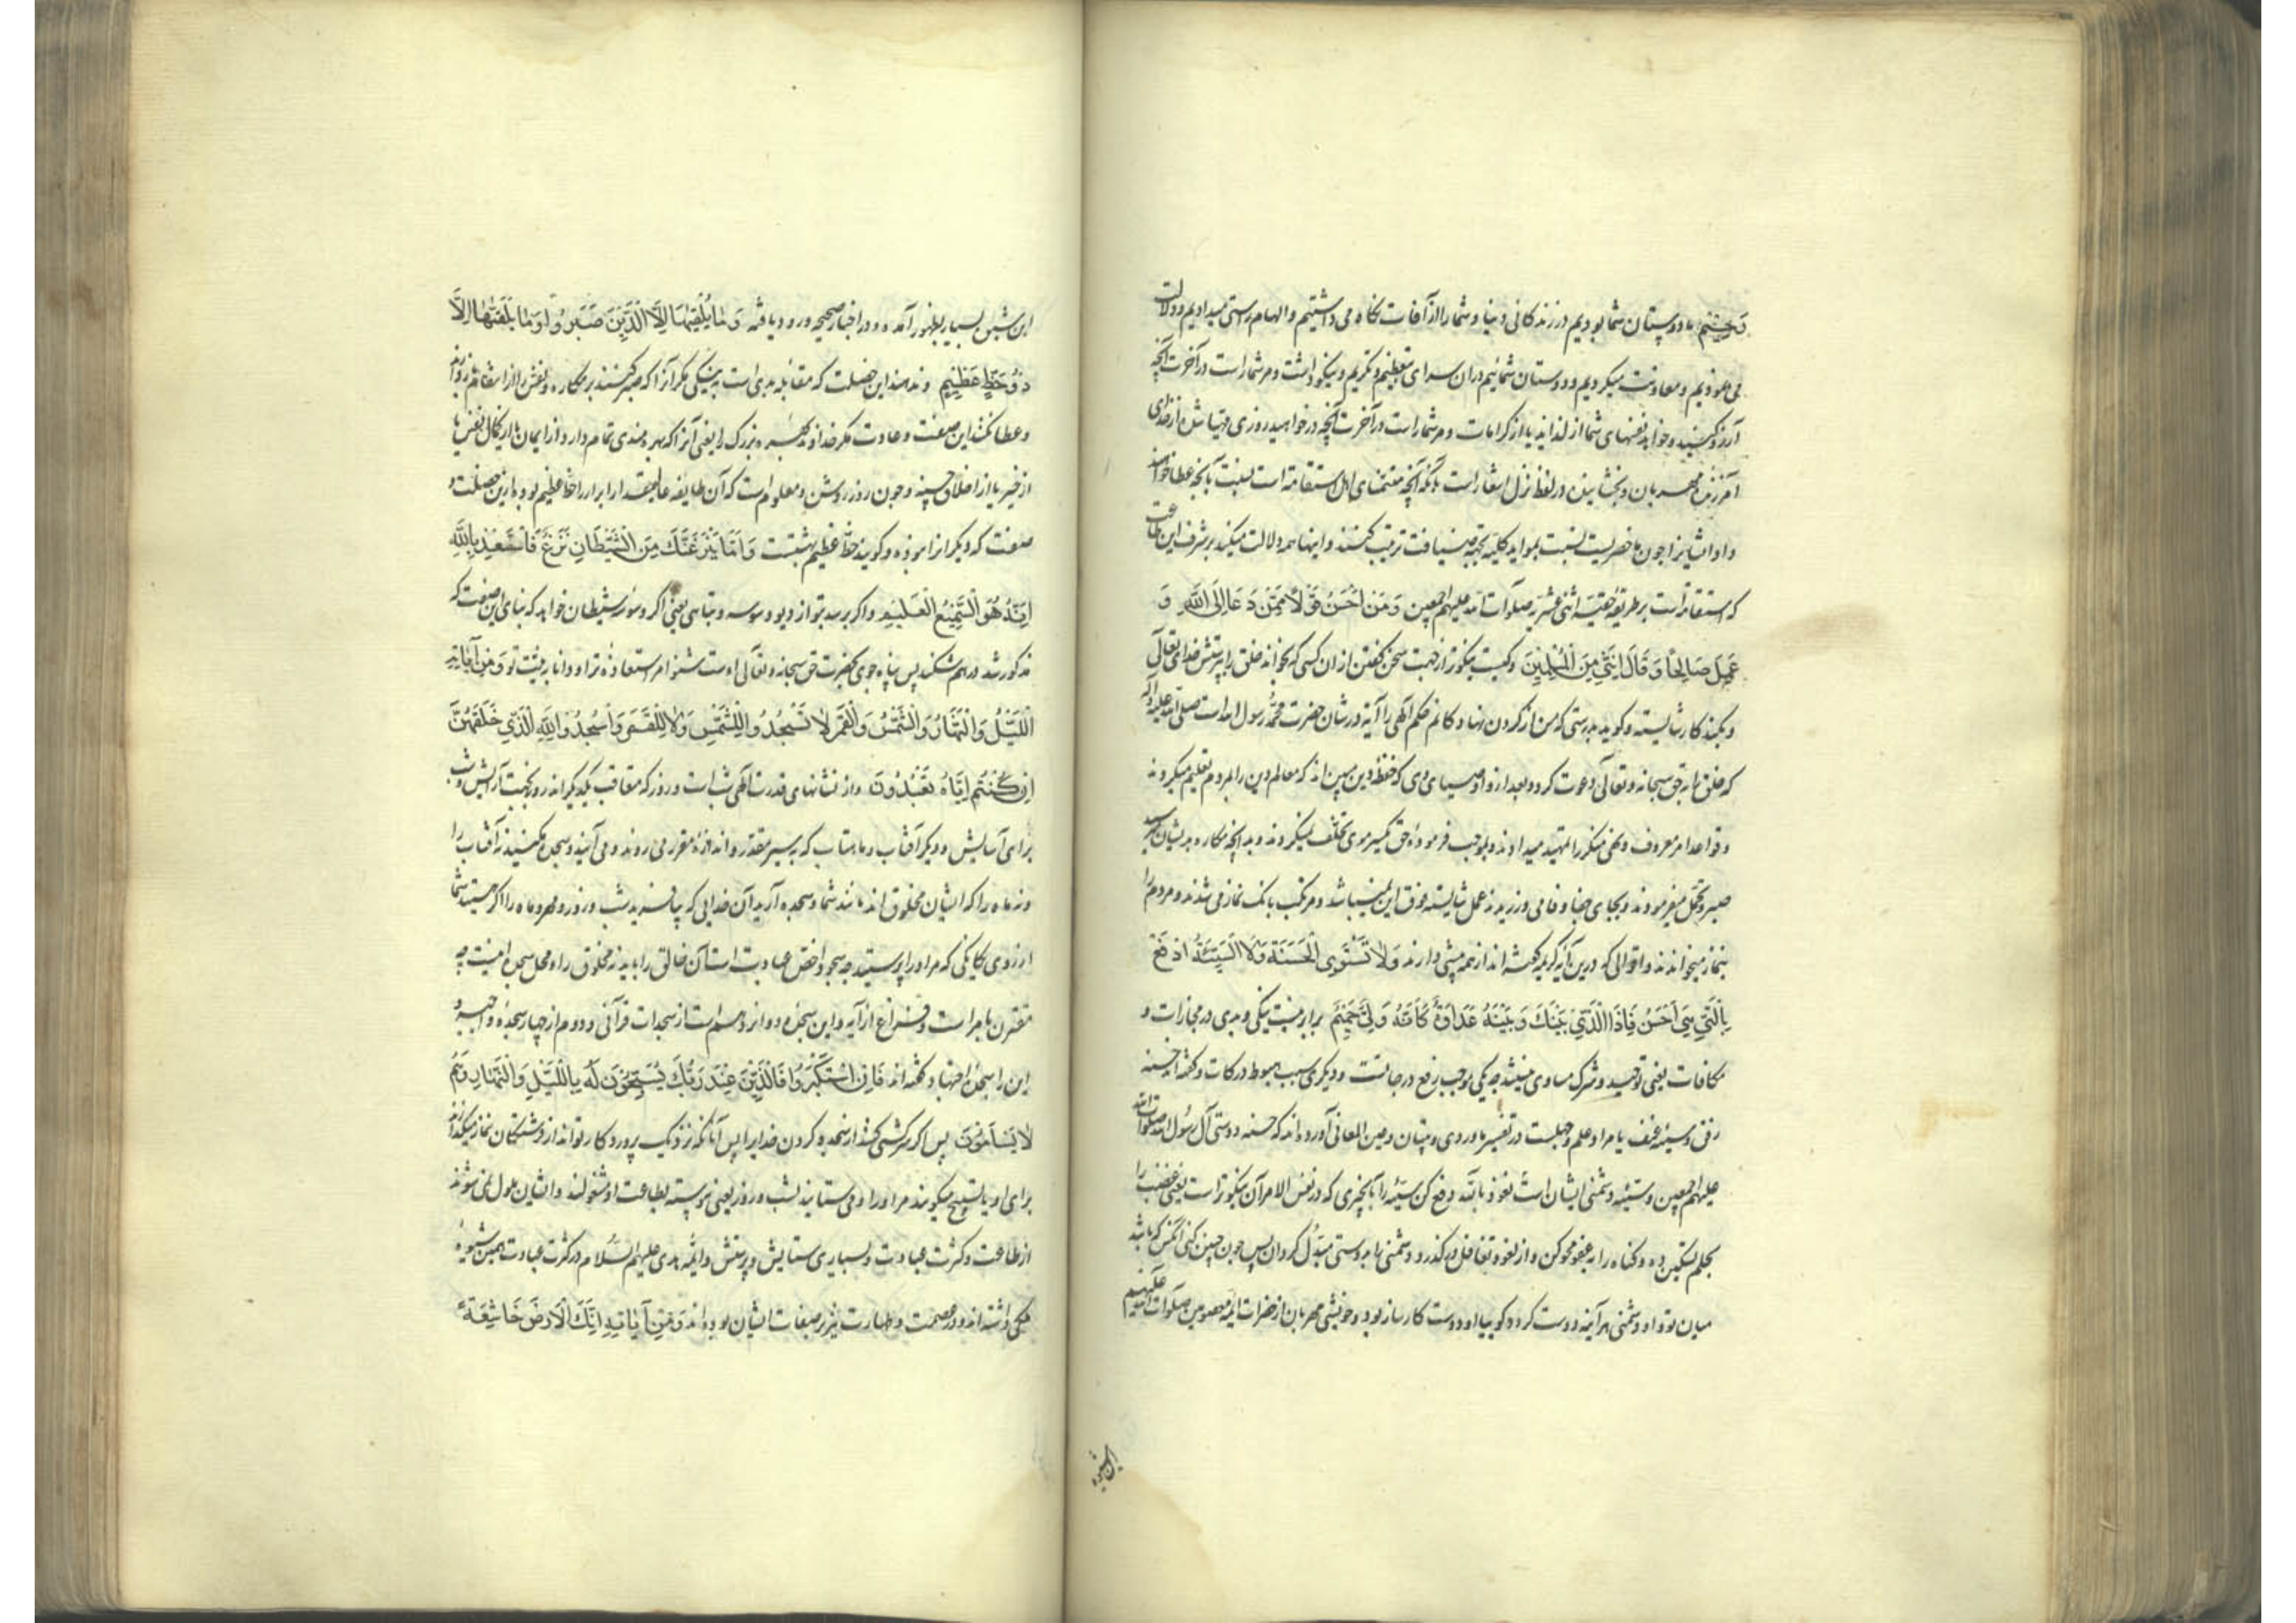 رَحِيمٍ ما دوستان شما بودیم در زندکانی دنیا و شما را از آفات نکاه می داشتیم و الهام راستی میدادیم و دلالت
می نمودیم و معاونت میکردیم و دوستان شمائیم در ان سرای بتعظیم و تکریم و نیکوداشت و مر شما راست در آخرت آنچه
آرزو کنید و خواهد نفسهای شما از لذاید یا از کرامات و مر شما راست در آخرت آنچه درخواهید روزی مهیا شده از خدای
آمرزنده مهربان و بخشاینده در لفظ نزل اشعار است بآنکه آنچه متمنای اهل استقامة است بنسبت بآنچه عطا خواهند
داد ایشانرا چون ما حضریست بنسبت بموایدی که بجهة ضیافت ترتیب کنند و اینها همه دلالت میکند بر شرف این طاعت
که استقامة است بر طریقه حقیه اثنی عشریه صلوات الله علیهم اجمعین وَمَنْ اَحْسَنُ قَوْلًا مِمَّنْ دَعَا اِلَى اللَّهِ وَ
عَمِلَ صَالِحًا وَقَالَ اِنَّنِي مِنَ الْمُسْلِمِينَ و کیست نیکوتر از جهت سخن کفتن از ان کسی که بخواند خلق را بپرستش خدای تعالی
و بکند کار شایسته و کوید بدرستی که من از کردن نهادکانم حکم الهی را آیه در شان حضرت محمد رسول الله است صلی الله علیه و آله
که خلق را بحق سبحانه و تعالی دعوت کرد و بعد از و اوصیای وی که حفظه دین مبین اند که معالم دین را بمردم تعلیم میکردند
و قواعد امر معروف و نهی منکر را تمهید میدادند و بموجب فرموده حق یکسر موی تخلف نمیکردند و بدانچه مکاره بدیشان میرسید
صبر و تحمل میفرمودند و بجای جفا وفا می ورزیدند عمل شایسته فوق این نمیباشد و مرتکب بانک نماز می شدند و مردم را
بنماز میخواندند و اقوالی که درین آیه کریمه کفته اند از همه بیشی دارند وَلَا تَسْتَوِي الْحَسَنَةُ وَلَا السَّيِّئَةُ ادْفَعْ
بِالَّتِي هِيَ اَحْسَنُ فَاِذَا الَّذِي بَيْنَكَ وَبَيْنَهُ عَدَاوَةٌ كَاَنَّهُ وَلِيٌّ حَمِيمٌ برابر نیست نیکی و بدی در مجازات و
مکافات یعنی توحید و شرک مساوی نمیشد چه یکی موجب رفع درجاتست و دیکری سبب هبوط درکات و کفته اند حسنه
رفق و سیئه عنف یا مراد علم و جهلست در تفسیر ماوردی و بتیان و عین المعانی آورده اند که حسنه دوستی آل رسول الله صلوات الله
علیهم اجمعین و سیئه دشمنی ایشان است نعوذ بالله دفع کن سیئه را بآن چیزی که در نفس الامر آن نیکوتر است یعنی غضب را
بحلم تسکین ده و کناه را بعفو محو کن و از لغو و تغافل در کذر و دشمنی را بدوستی مبدل کردان پس چون چنین کنی آنکس که باشد
میان تو و او دشمنی هر آینه دوست کردد کوییا او دوست کارساز بود و خویشی مهربان از حضرات ائمه معصومین صلوات الله علیهم
این شیوه
این شیوه بسیار بظهور آمده و در اخبار صحیحه ورود یافته وَمَا يُلَقَّاهَا اِلَّا الَّذِينَ صَبَرُوا وَمَا يُلَقَّاهَا اِلَّا
ذُو حَظٍّ عَظِيمٍ و ندهند این خصلت که مقابله بدی است به نیکی مکر آنرا که صبر کنند بر مکاره و نفس را از انتقام باز دارند
و عطا نکنند این صفت و عادت مکر خداوند بهره بزرک را یعنی آنرا که بهره مندی تمام دارد از ایمان یا از کمال نفس یا
از خیر یا از اخلاق حسنه و چون روز روشن و معلوم است که آن طایفه عالیمقدار ابرار را حظ عظیم بوده ازین خصلت و
صفت که دیکرانرا نبوده و کویند حظ عظیم بهشتست وَاِمَّا يَنْزَغَنَّكَ مِنَ الشَّيْطَانِ نَزْغٌ فَاسْتَعِذْ بِاللَّهِ
اِنَّهُ هُوَ السَّمِيعُ الْعَلِيمُ و اکر برسد بتو از دیو وسوسه و تباهی یعنی اکر وسوسه شیطان خواهد که بنای این صفت که
مذکور شد در هم شکند پس پناه جوی بحضرت حق سبحانه و تعالی اوست شنوا مر استعاذه ترا و دانا بر نیت تو وَمِنْ آيَاتِهِ
اللَّيْلُ وَالنَّهَارُ وَالشَّمْسُ وَالْقَمَرُ لَا تَسْجُدُوا لِلشَّمْسِ وَلَا لِلْقَمَرِ وَاسْجُدُوا لِلَّهِ الَّذِي خَلَقَهُنَّ
اِنْ كُنْتُمْ اِيَّاهُ تَعْبُدُونَ و از نشانهای قدرت الهی شب است و روز که متعاقب یکدیکراند روز بجهت آرایش و شب
برای آسایش و دیکر آفتاب و ماهتاب که بسیر مقدر و اندازه مقرر می روند و می آیند و سجده مکنید نه آفتاب را
و نه ماه را که ایشان مخلوق اند مانند شما و سجده آرید آن خدایی که بیافرید شب و روز و مهر و ماه را اکر هستید شما
از روی یکانکی که مر او را پرستید چه سجود اخص عبادت است آن خالق را باید نه مخلوق را و محل سجده اینست چه
مقترن بامر است و فراغ از آیه و این سجده دوازدهم است از سجدات قرآنی و دوم از چهار سجده واجب و
این را سجده اجتهاد کفته اند فَاِنِ اسْتَكْبَرُوا فَالَّذِينَ عِنْدَ رَبِّكَ يُسَبِّحُونَ لَهُ بِاللَّيْلِ وَالنَّهَارِ وَهُمْ
لَا يَسْاَمُونَ پس اکر سرکشی کنند از سجده کردن خدایرا پس آنانکه نزدیک پروردکار تواند از فرشتکان نماز میکذارند
برای او یا تسبیح میکویند مر او را و می ستایند بشب و روز یعنی پیوسته بطاعت او مشغولند و ایشان ملول نمی شوند
از طاعت و کثرت عبادت و بسیاری ستایش و پرستش و ائمه هدی علیهم السلام در کثرت عبادت همین شیوه
داشته اند و در عصمت و طهارت نیز بر صفات ایشان بوده اند وَمِنْ آيَاتِهِ اَنَّكَ تَرَى الْاَرْضَ خَاشِعَةً